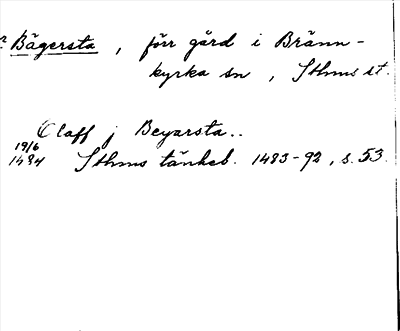 Bägersta, förr gård i Bränn-
kyrka sn, Sthms st.
Olaff j Beyarsta..
19/6
1484 Sthms tänkeb. 1483-92, s. 53.